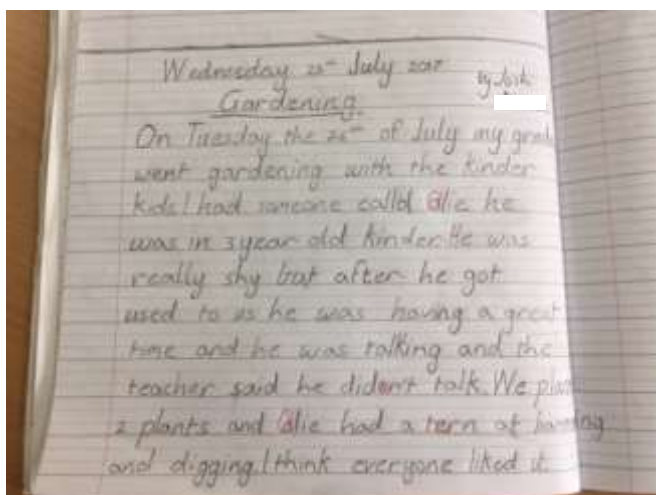 Wednesday July 2017
by Josh
Gardening
On Tuesday the of July my grade
went gardening with the kinder
kids I had someone calld he
was in 3 year old kinder. He was
really shy but after he got
used to us he was having a great
time and he was talking and the
teacher said he didn't talk. We
2 plants and had a tern at
and digging. I think everyone liked it.